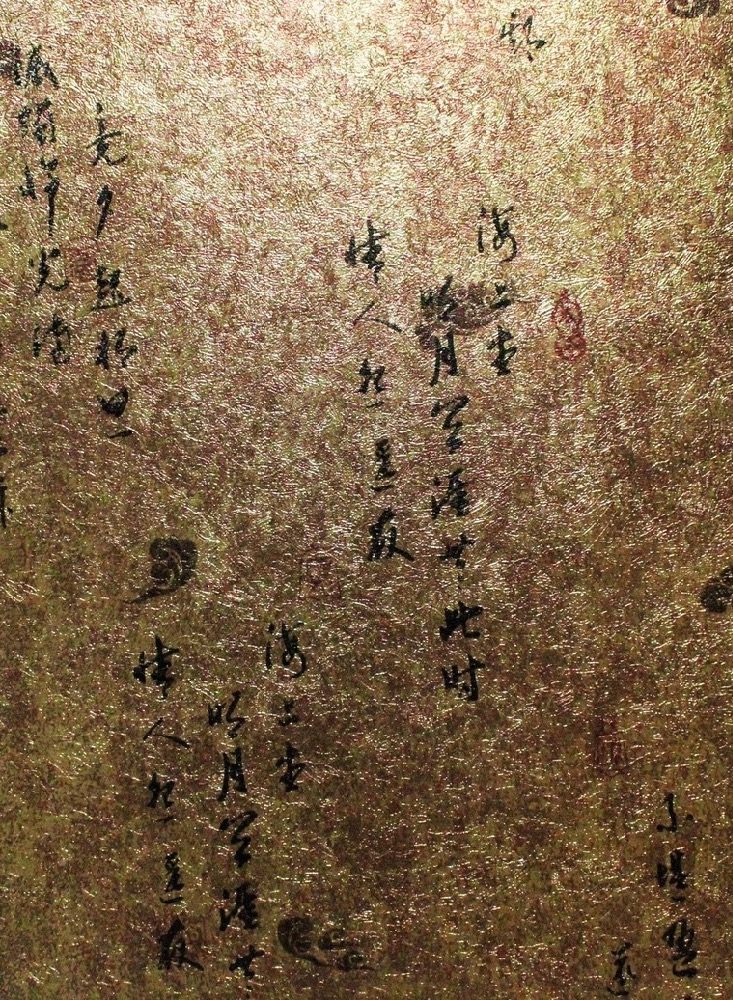 不堪盈
海上生
明月天涯共此时
情人怨遥夜
海上生
明月天涯共
情人怨遥夜
竟夕起相思
滅燭憐光滿